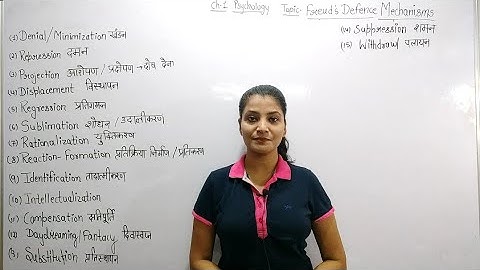 Ch-1 Psychology Topic- Freud's Defence Mechanisms
(1) Denial/Minimization खंडन
(2) Repression दमन
(3) Projection आरोपण / प्रक्षेपण → दोष देना
(4) Displacement विस्थापन
(5) Regression प्रतिगमन
(6) Sublimation शोधन / उदात्तीकरण
(7) Rationalization युक्तिकरण
(8) Reaction-Formation प्रतिक्रिया निर्माण / प्रतिकरण
(9) Identification तादात्मीकरण
(10) Intellectualization
(11) Compensation क्षतिपूर्ति
(12) Daydreaming/Fantacy दिवास्वप्न
(13) Substitution प्रतिस्थापन
(14) Suppression शमन
(15) Withdrawl पलायन